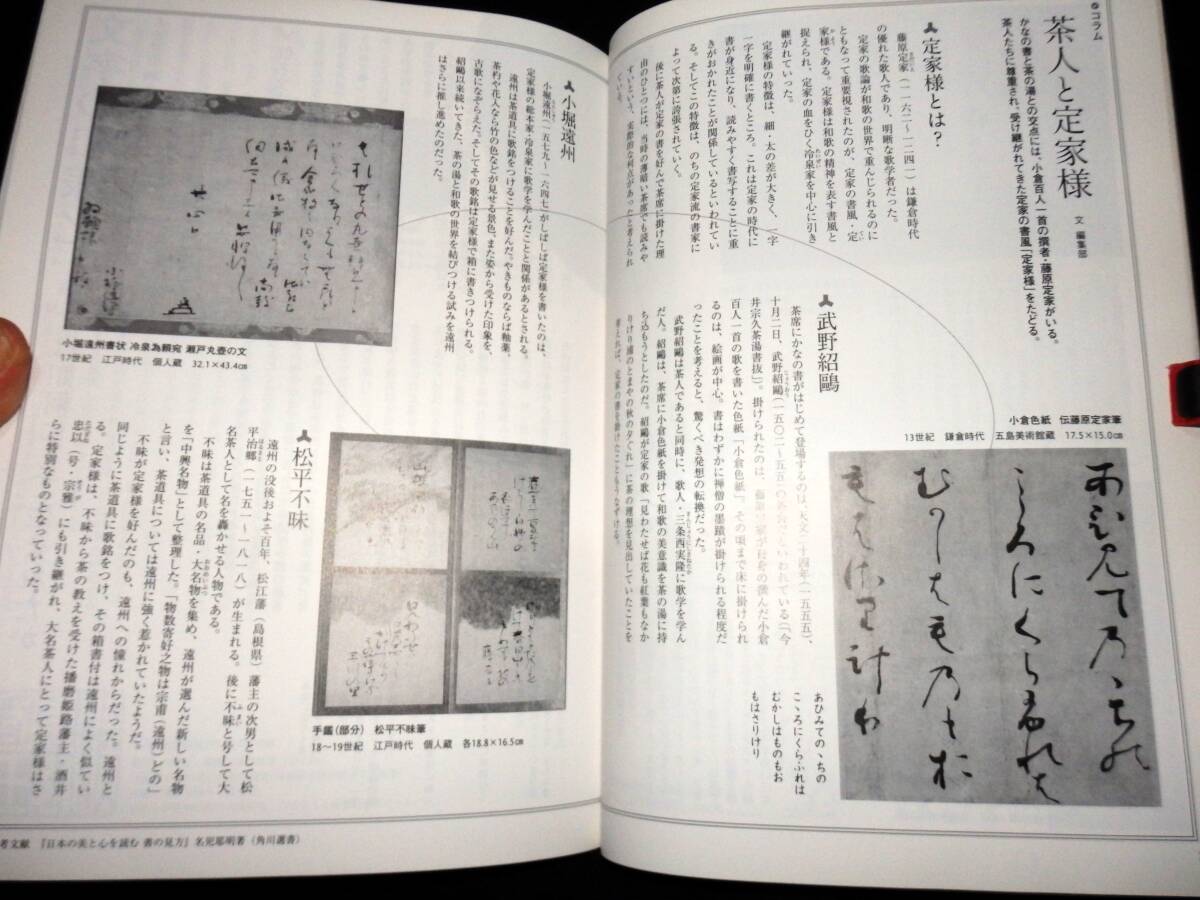 コラム
茶人と定家様
文 編集部
かなの書と茶の湯との交点には、小倉百人一首の撰者・藤原定家がいる。
茶人たちに尊重され、受け継がれてきた定家の書風「定家様」をたどる。
定家様とは？
藤原定家（一一六二〜一二四一）は鎌倉時代
の優れた歌人であり、明晰な歌学者だった。
定家の歌論が和歌の世界で重んじられるのに
ともなって重要視されたのが、定家の書風・定
家様である。定家様は和歌の精神を表す書風と
捉えられ、定家の血をひく冷泉家を中心に引き
継がれていった。
定家様の特徴は、細・太の差が大きく、一字
一字を明確に書くところ。これは定家の時代に
書が身近になり、読みやすく書写することに重
きがおかれたことが関係しているといわれてい
る。そしてこの特徴は、のちの定家流の書家に
よって次第に誇張されていく。
後に茶人が定家の書を好んで茶席に掛けた理
由のひとつには、当時の薄暗い茶席でも読みや
すいという、実際的な利点があったと考えられ
ている。
武野紹鷗
茶席にかなの書がはじめて登場するのは、天文二十四年（一五五五）、
十月二日、武野紹鷗（一五〇二〜五五）の茶会といわれている（『今
井宗久茶湯書抜』）。掛けられたのは、藤原定家が自身の撰んだ小倉
百人一首の歌を書いた色紙「小倉色紙」。その頃まで床に掛けられ
るのは、絵画が中心。書はわずかに禅僧の墨蹟が掛けられる程度だ
ったことを考えると、驚くべき発想の転換だった。
武野紹鷗は茶人であると同時に、歌人・三条西実隆に歌学を学ん
だ人。紹鷗は、茶席に小倉色紙を掛けて和歌の美意識を茶の湯に持
ち込もうとしたのだ。紹鷗が定家の歌「見わたせば花も紅葉もなか
りけり浦のとまやの秋の夕ぐれ」に茶の理想を見出していたことを
考えれば、定家の書を掛けたこともうなずける。
小倉色紙 伝藤原定家筆
13世紀 鎌倉時代 五島美術館蔵 17.5×15.0㎝
あひみてのゝちの
こゝろにくらふれは
むかしはものもお
もはさりけり
小堀遠州
小堀遠州（一五七九〜一六四七）がしばしば定家様を書いたのは、
定家様の総本家・冷泉家に歌学を学んだことと関係があるとされる。
遠州は茶道具に歌銘をつけることを好んだ。やきものならば釉薬、
茶杓や花入なら竹の色などが見せる景色、また姿から受けた印象を、
古歌になぞらえた。そしてその歌銘は定家様で箱に書きつけられる。
紹鷗以来続いてきた、茶の湯と和歌の世界を結びつける試みを遠州
はさらに推し進めたのだった。
小堀遠州書状 冷泉為頼宛 瀬戸丸壺の文
17世紀 江戸時代 個人蔵 32.1×43.4㎝
松平不昧
遠州の没後およそ百年、松江藩（島根県）藩主の次男として松
平治郷（一七五一〜一八一八）が生まれる。後に不昧と号して大
名茶人として名を轟かせる人物である。
不昧は茶道具の名品・大名物を集め、遠州が選んだ新しい名物
を「中興名物」として整理した。「物数寄好之物は宗甫（遠州）どの」
と言い、茶道具については遠州に強く惹かれていたようだ。
不昧が定家様を好んだのも、遠州への憧れからだった。遠州と
同じように茶道具に歌銘をつけ、その箱書付は遠州によく似てい
る。定家様は、不昧から茶の教えを受けた播磨姫路藩主・酒井
忠以（号・宗雅）にも引き継がれ、大名茶人にとって定家様はさ
らに特別なものとなっていった。
手鑑（部分） 松平不昧筆
18〜19世紀 江戸時代 個人蔵 各18.8×16.5㎝
考文献 『日本の美と心を読む 書の見方』名児耶明著（角川選書）